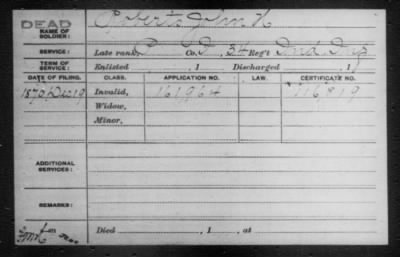 DEAD
NAME OF SOLDIER: Roberts John H
SERVICE: Late rank P Co. D, 34 Reg't Ind. Inf
TERM OF SERVICE: Enlisted , 1 Discharged , 1
DATE OF FILING. CLASS. APPLICATION NO. LAW. CERTIFICATE NO.
1879 Dec 19 Invalid, 161964 716819
Widow,
Minor,
ADDITIONAL SERVICES:
REMARKS:
Died , 1 , at